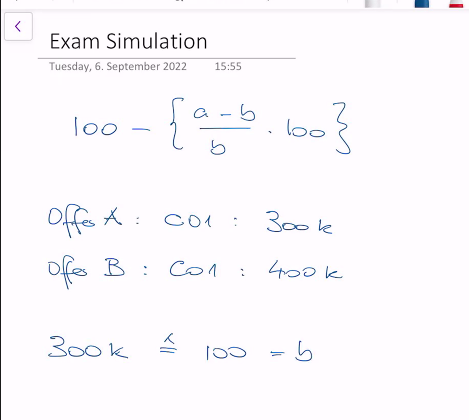 Exam Simulation
Tuesday, 6. September 2022 15:55
100 - { a - b / b . 100 }
Offer A : CO1 : 300k
Offer B : CO1 : 400k
300k ≙ 100 = b